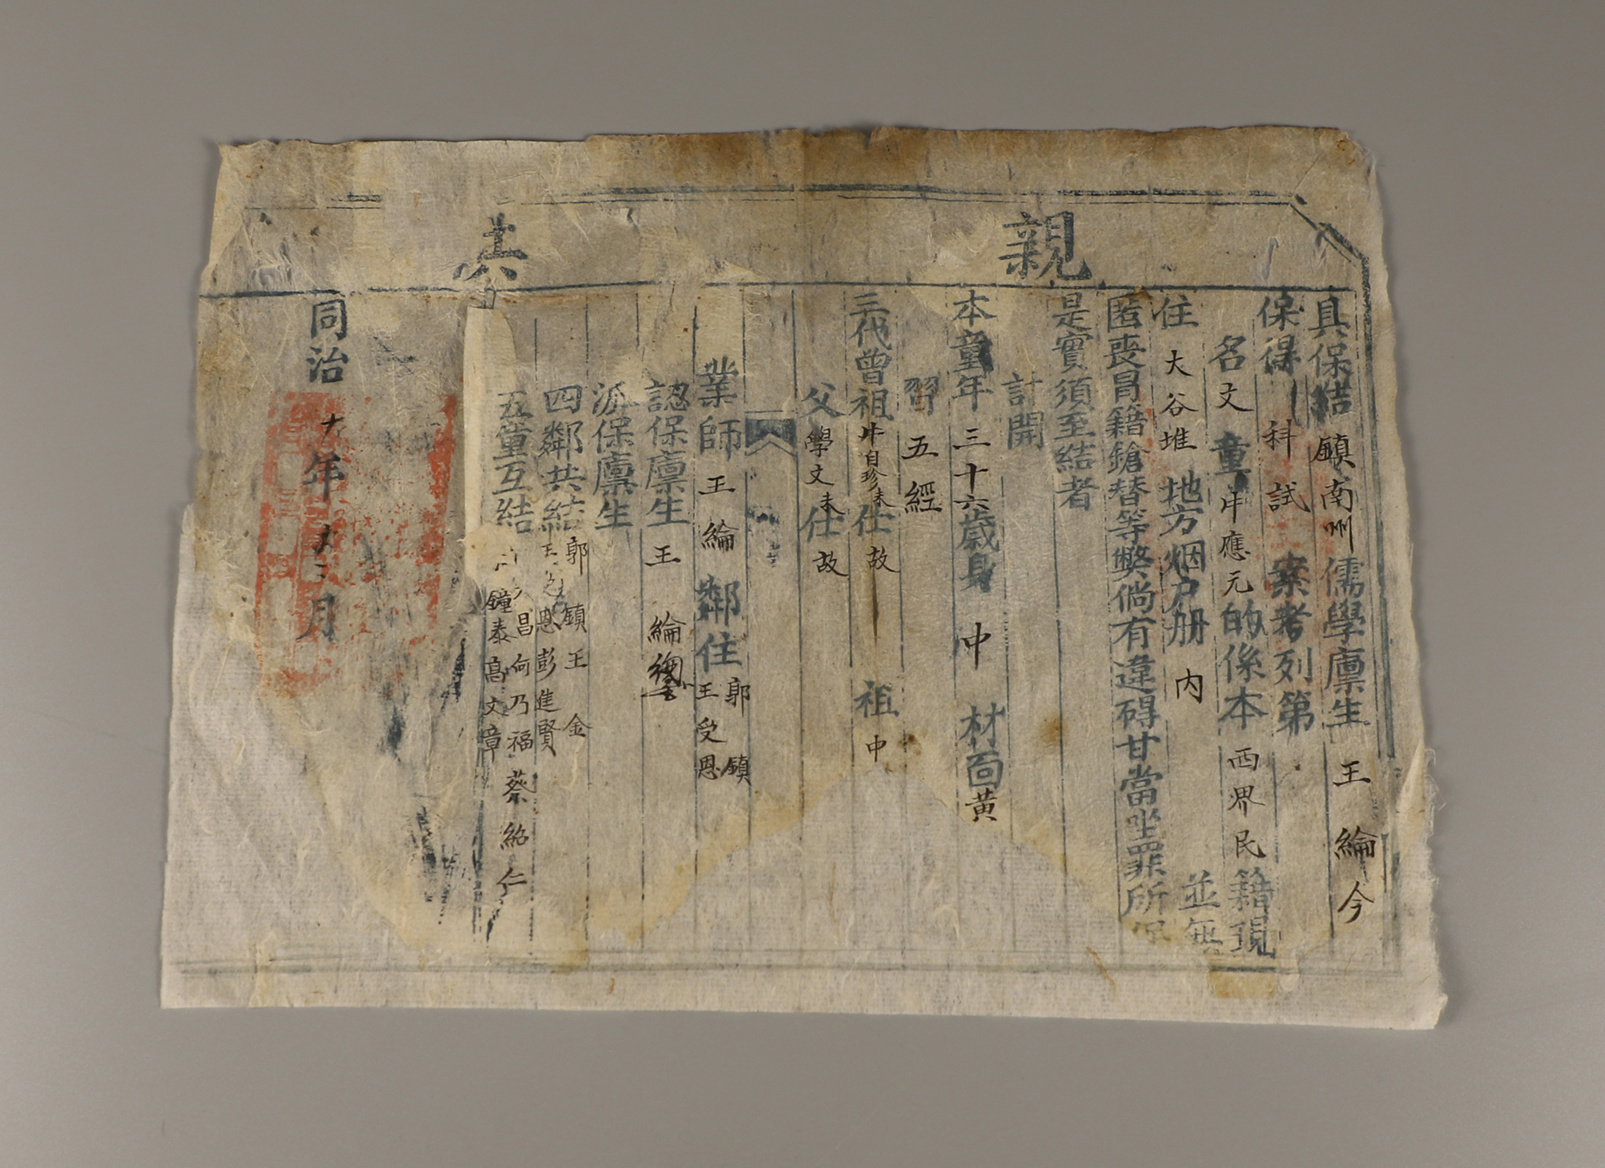 親共
具保結鎮南州儒學廩生王綸今
保得科試案考列第
名文童申應元的係本西界民籍現
住大谷堆地方烟户册内並無
匿喪冒籍鎗替等弊倘有違碍甘當坐罪所
是實須至結者
計開
本童年三十六歲身中材面黄
習五經
三代曾祖自珍未仕故祖中
父學文未仕故
業師王綸鄰住郭鎮王受恩
認保廩生王綸
派保廩生
四鄰共結郭鎮王金恩彭進賢
五童互結昌向乃福蔡紹仁鐘泰高文章
同治年月